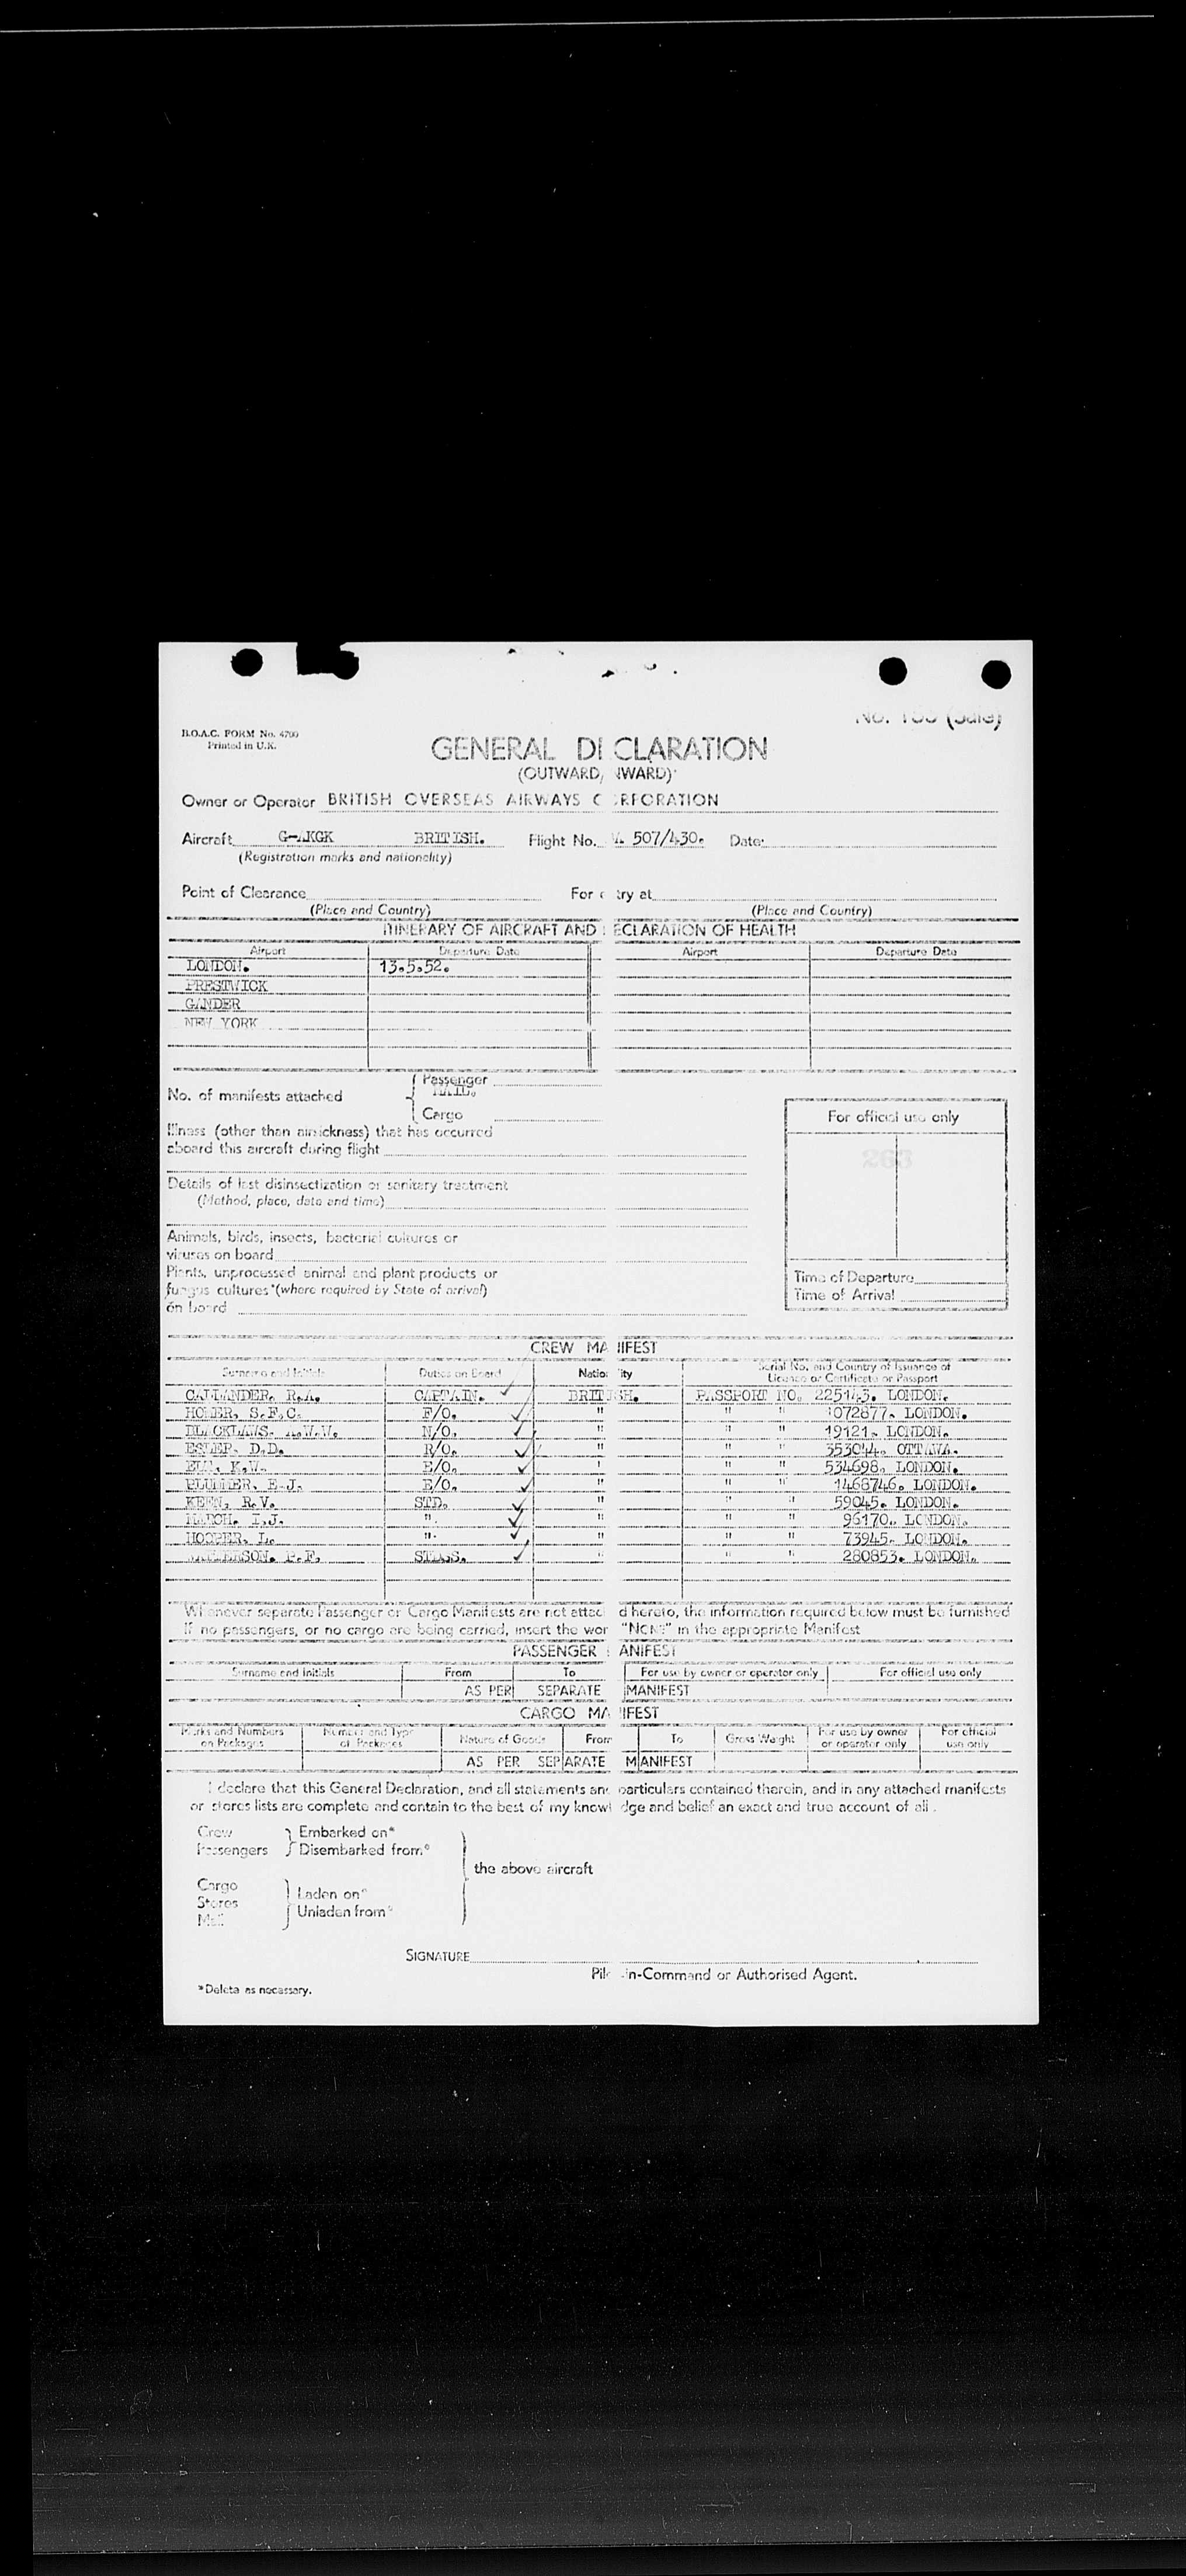 No. 133 (Sale)
B.O.A.C. FORM No. 4700
Printed in U.K.
GENERAL DECLARATION
(OUTWARD/INWARD)*
Owner or Operator BRITISH OVERSEAS AIRWAYS CORPORATION
Aircraft G-AKGK BRITISH. Flight No. 507/430. Date:
(Registration marks and nationality)
Point of Clearance For entry at
(Place and Country) (Place and Country)
ITINERARY OF AIRCRAFT AND DECLARATION OF HEALTH
Airport Departure Date Airport Departure Date
LONDON. 13.5.52.
PRESTWICK
GANDER
NEW YORK
Passenger
No. of manifests attached MAIL.
Cargo
For official use only
Illness (other than airsickness) that has occurred
aboard this aircraft during flight
263
Details of last disinsectization or sanitary treatment
(Method, place, date and time)
Animals, birds, insects, bacterial cultures or
viruses on board
Plants, unprocessed animal and plant products or
fungus cultures*(where required by State of arrival)
on board
Time of Departure
Time of Arrival
CREW MANIFEST
Surname and Initials Duties on Board Nationality Serial No. and Country of Issuance of
Licence or Certificate or Passport
CALLANDER, R.A. CAPTAIN. BRITISH. PASSPORT NO. 225143. LONDON.
HOMER, S.F.C. F/O. " " " 1072877. LONDON.
BLACKLAWS. A.W.W. N/O. " " " 19121. LONDON.
ESLER. D.D. R/O. " " " 353044. OTTAWA.
K.W. E/O. " " " 534698. LONDON.
PLUMMER, E.J. E/O. " " " 1468746. LONDON.
KEEN, R.V. STD. " " " 59045. LONDON.
MARCH. I.J. " " " " 96170. LONDON.
HOOPER, L. " " " " 73945. LONDON.
P.F. STDSS. " " " 280853. LONDON.
Whenever separate Passenger or Cargo Manifests are not attached hereto, the information required below must be furnished
If no passengers, or no cargo are being carried, insert the word "NONE" in the appropriate Manifest
PASSENGER MANIFEST
Surname and Initials From To For use by owner or operator only For official use only
AS PER SEPARATE MANIFEST
CARGO MANIFEST
Marks and Numbers on Packages Number and Type of Packages Nature of Goods From To Gross Weight For use by owner or operator only For official use only
AS PER SEPARATE MANIFEST
I declare that this General Declaration, and all statements and particulars contained therein, and in any attached manifests
or stores lists are complete and contain to the best of my knowledge and belief an exact and true account of all.
Crew Embarked on*
Passengers Disembarked from*
the above aircraft
Cargo
Stores Laden on*
Mail Unladen from*
SIGNATURE
Pilot-in-Command or Authorised Agent.
*Delete as necessary.